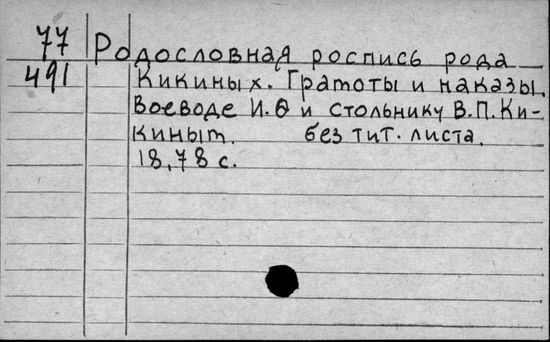 77 Родословная роспись рода
491 Кикиных. Грамоты и наказы.
Воеводе И.Ѳ и стольнику В.П.Ки-
киным. без тит. листа.
18,78 с.